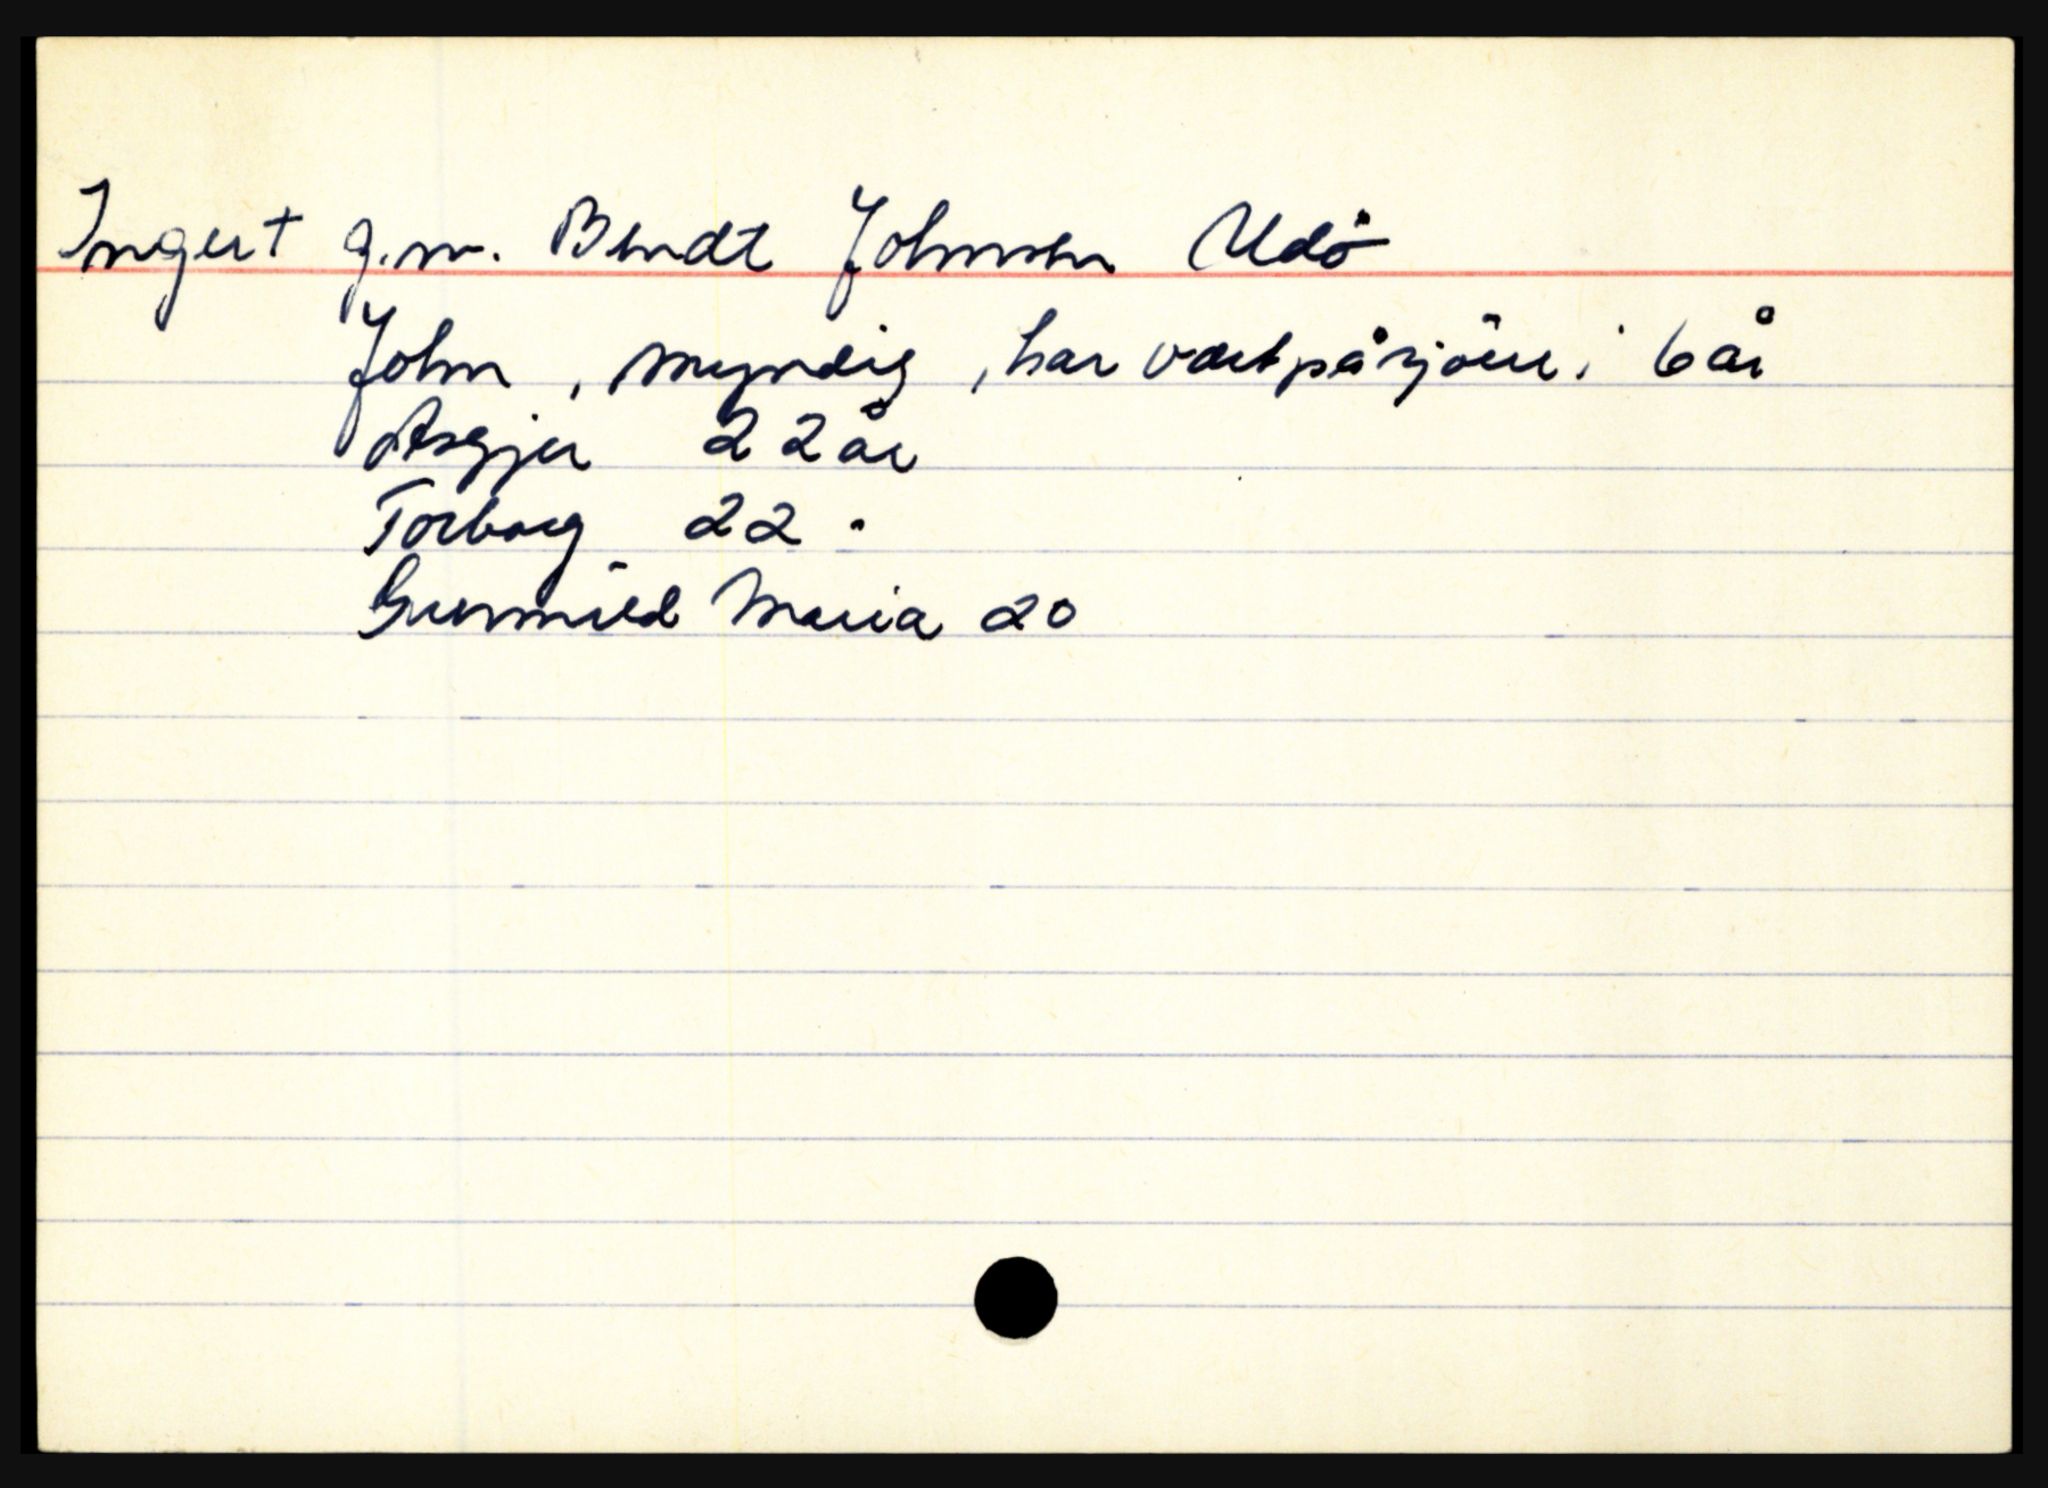 Ingert g.m. Berndt Johnsen Udö
John, myndig, har vært på sjöen i 6 år
Asgjer 22 år
Torborg 22 "
Gunnild Maria 20